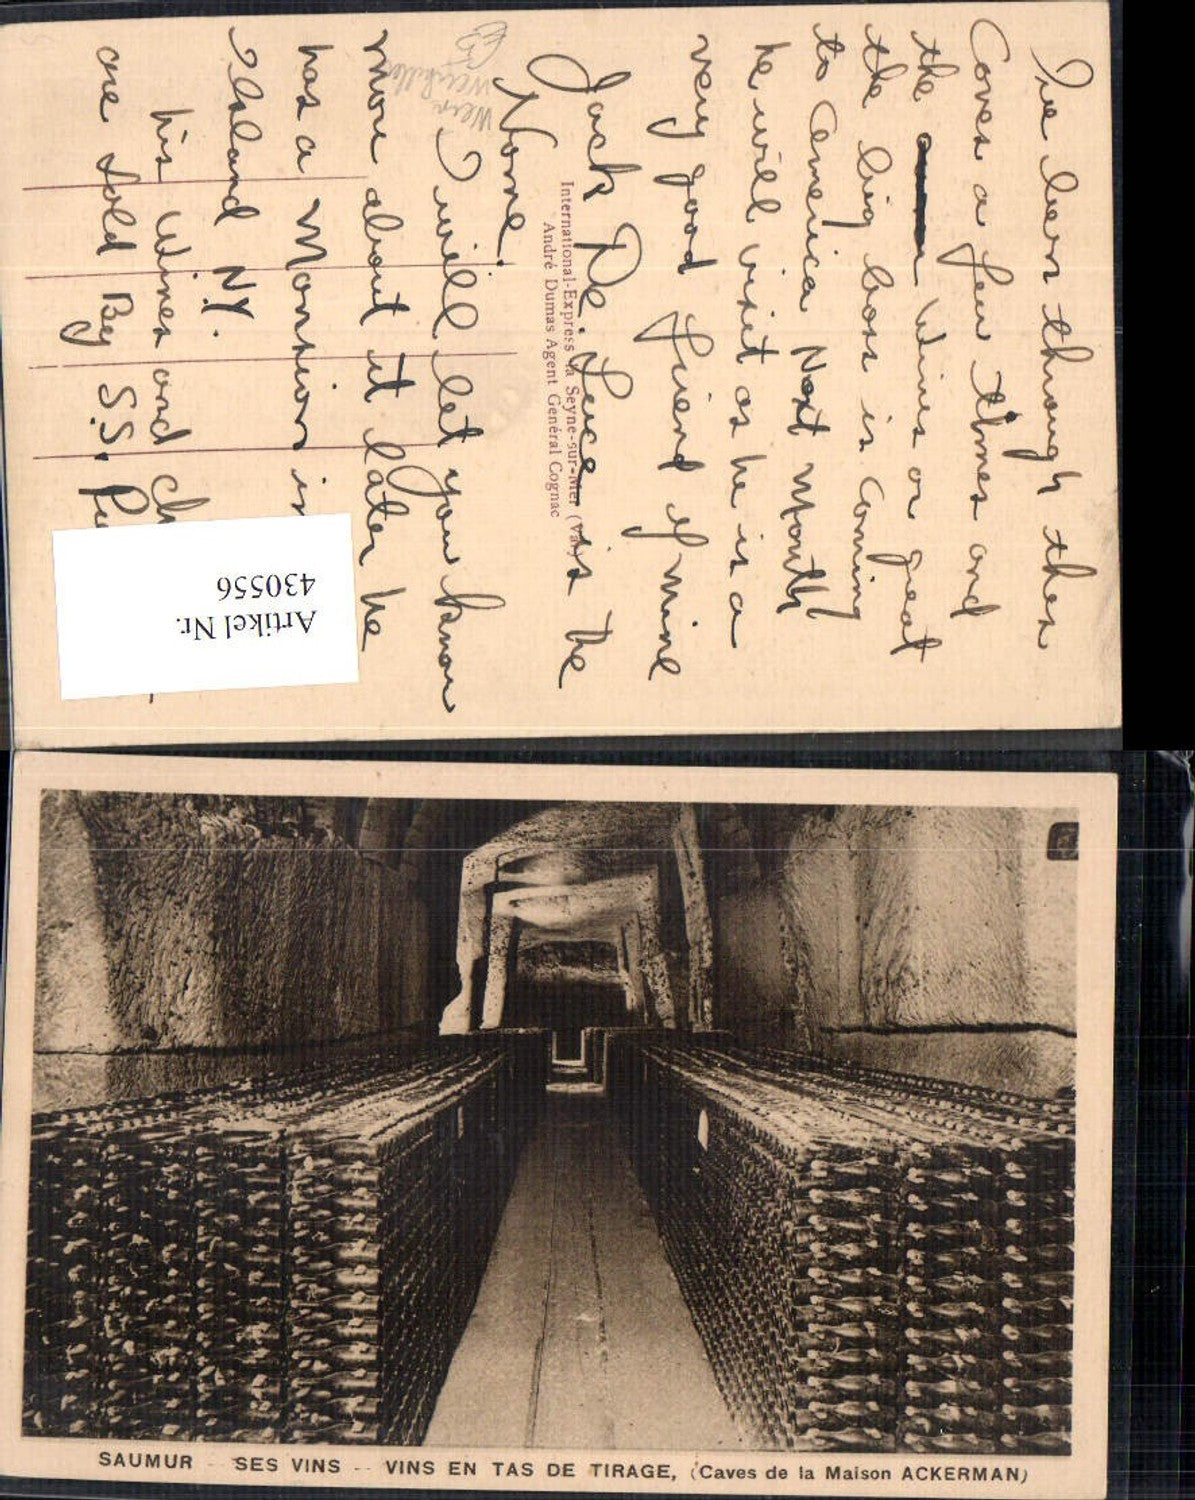 I've been through these
Caves a few times and
the Wines are great
the big boss is coming
to America Next Month
he will visit as he is a
very good friend of mine
Jack De. Luce is the
Name.
I will let you know
more about it later he
has a Mansion in
Island N.Y.
his Wines and Ch
are Sold By S.S. P
International-Express la Seyne-sur-Mer (Var)
André Dumas Agent Général Cognac
Wein
Artikel Nr.
430556
SAUMUR - SES VINS -- VINS EN TAS DE TIRAGE, (Caves de la Maison ACKERMAN)